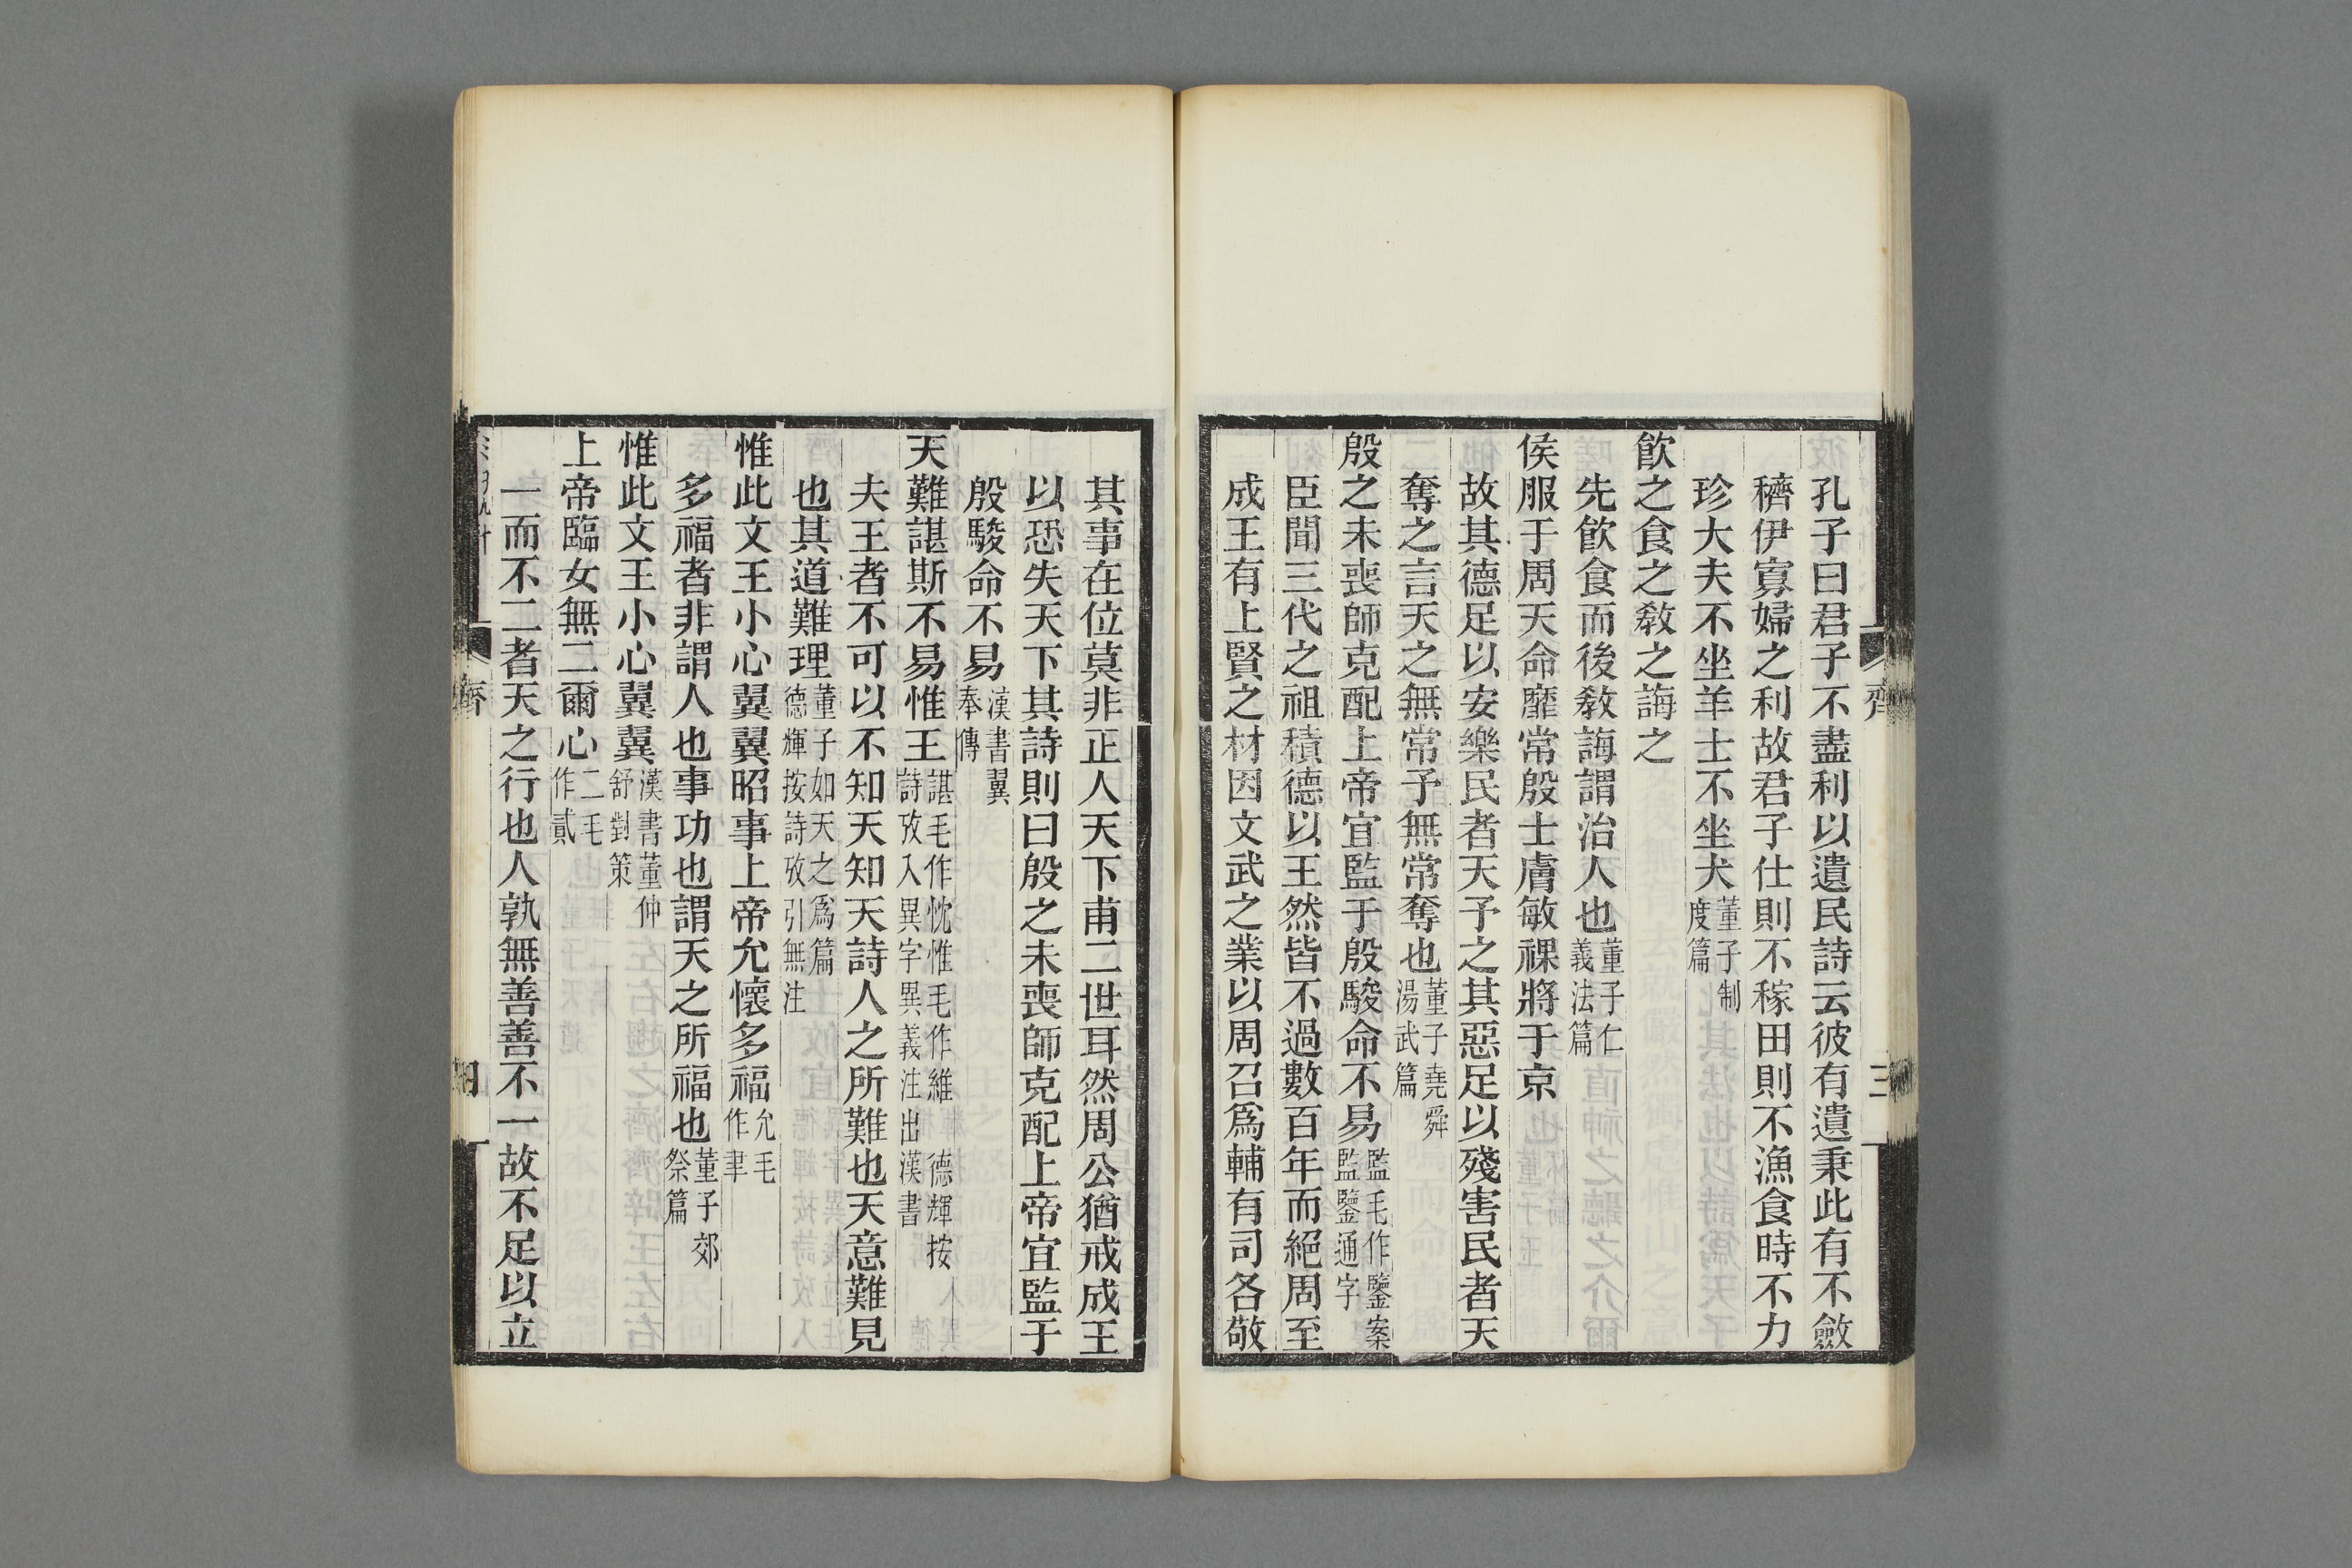 孔子曰君子不盡利以遺民詩云彼有遺秉此有不斂
穧伊寡婦之利故君子仕則不稼田則不漁食時不力
珍大夫不坐羊士不坐犬董子制度篇
飮之食之敎之誨之
先飮食而後敎誨謂治人也董子仁義法篇
侯服于周天命靡常殷士膚敏祼將于京
故其德足以安樂民者天予之其惡足以殘害民者天
奪之言天之無常予無常奪也董子堯舜湯武篇
殷之未喪師克配上帝宜監于殷駿命不易監毛作鑒案監鑒通字
臣聞三代之祖積德以王然皆不過數百年而絕周至
成王有上賢之材因文武之業以周召爲輔有司各敬
齊
三
其事在位莫非正人天下甫二世耳然周公猶戒成王
以恐失天下其詩則曰殷之未喪師克配上帝宜監于
殷駿命不易漢書翼奉傳
天難諶斯不易惟王諶毛作忱惟毛作維 德輝按詩攷入異字異義注出漢書
夫王者不可以不知天知天詩人之所難也天意難見
也其道難理董子如天之爲篇德輝按詩攷引無注
惟此文王小心翼翼昭事上帝允懷多福允毛作聿
多福者非謂人也事功也謂天之所福也董子郊祭篇
惟此文王小心翼翼漢書董仲舒對策
上帝臨女無二爾心二毛作貳
一而不二者天之行也人孰無善善不一故不足以立
齊
四